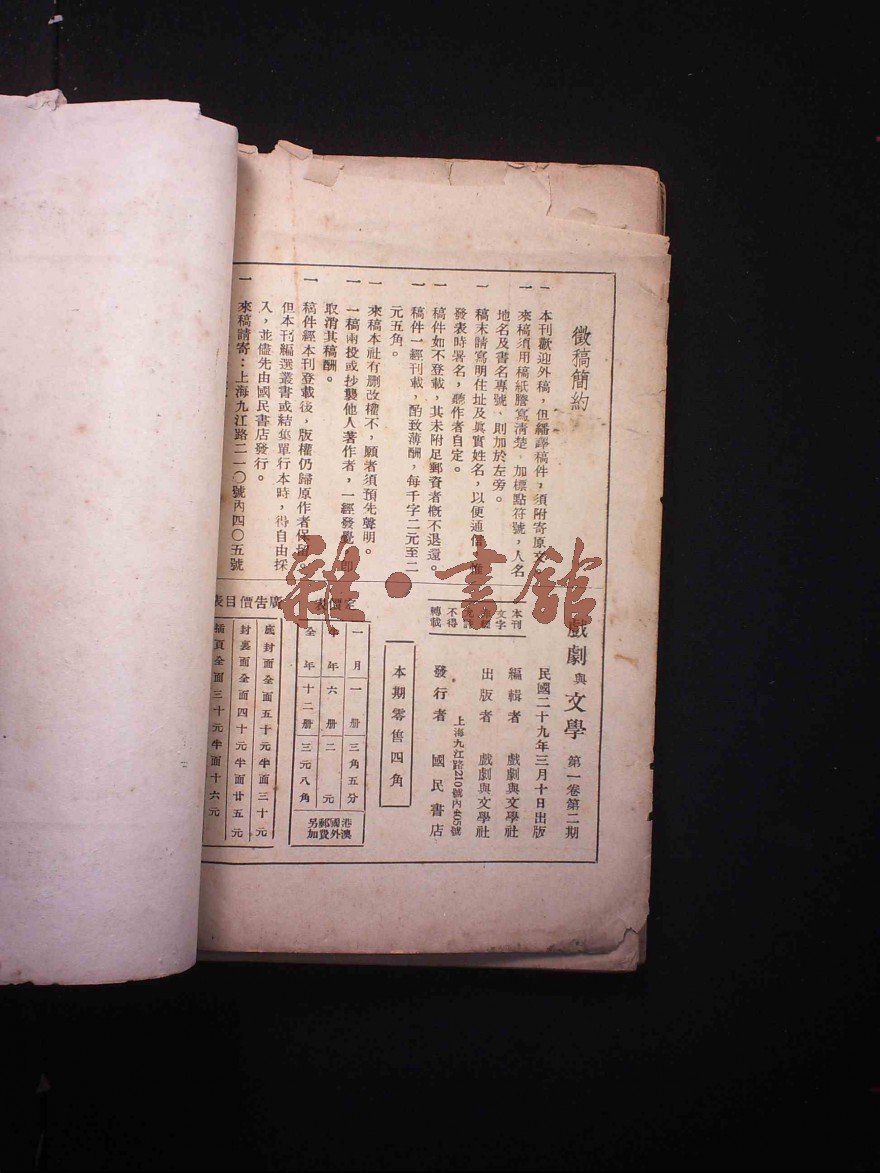 徵稿簡約
一　本刊歡迎外稿，但繙譯稿件，須附寄原文。
一　來稿須用稿紙謄寫清楚，加標點符號，人名
地名及書名專號、則加於左旁。
一　稿末請寫明住址及眞實姓名，以便通信，惟
發表時署名，聽作者自定。
一　稿件如不登載，其未附足郵資者槪不退還。
一　稿件一經刊載，酌致薄酬，每千字二元至二
元五角。
一　來稿本社有刪改權不，願者須預先聲明。
一　一稿兩投或抄襲他人著作者，一經發覺，卽
取消其稿酬。
一　稿件經本刊登載後，版權仍歸原作者保留。
但本刊編選叢書或結集單行本時，得自由採
入，並儘先由國民書店發行。
一　來稿請寄：上海九江路二一〇號內四〇五號
戲劇與文學　第一卷第二期
民國二十九年三月十日出版
編輯者　戲劇與文學社
出版者　戲劇與文學社
發行者　國民書店
上海九江路210號內405號
本刊
文字
未經
允許
不得
轉載
本期零售四角
定價表
一月　一册　三角五分
半年　六册　二元
全年　十二册　三元八角
港澳
國外
郵費
另加
廣告價目表
底封面全面五十元半面三十元
封裏面全面四十元半面廿五元
插頁全面三十元半面十六元
雜·書館